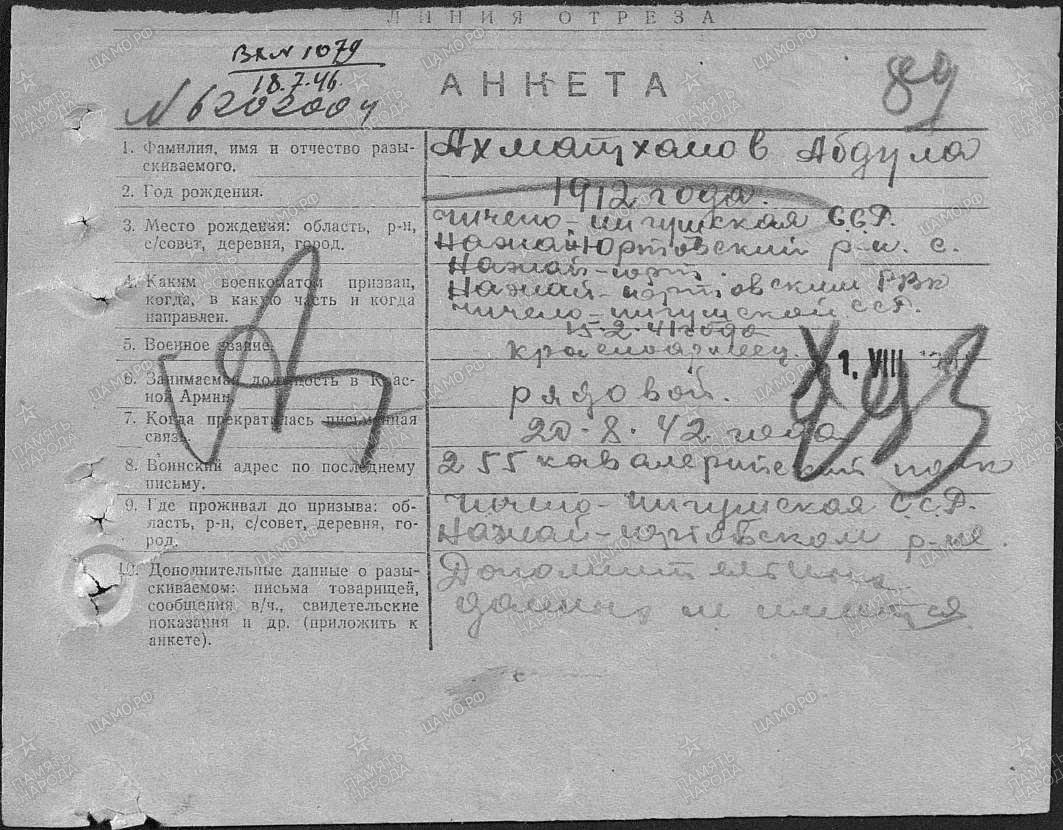 ЛИНИЯ ОТРЕЗА
Вх№ 1079
18.7.46.
№ 6202004
АНКЕТА
89
1. Фамилия, имя и отчество разы-
скиваемого.
Ахматханов Абдула
2. Год рождения.
1912 года.
3. Место рождения: область, р-н,
с/совет, деревня, город.
чичено-ингушская ССР.
Нажай Юртовский р-н. с.
Нажай-юрт.
4. Каким военкоматом призван,
когда, в какую часть и когда
направлен.
Нажай-юртовским РВК
чичено-ингушской ССР.
15-2-41 года
5. Военное звание.
красноармеец.
1. VIII
6. Занимаемая должность в Крас-
ной Армии.
рядовой.
7. Когда прекратилась письменная
связь.
20-8-42 года
8. Воинский адрес по последнему
письму.
255 кавалерийский полк
9. Где проживал до призыва: об-
ласть, р-н, с/совет, деревня, го-
род.
Чичено-ингушская ССР.
Нажай-юртовском р-не.
10. Дополнительные данные о разы-
скиваемом: письма товарищей,
сообщения в/ч., свидетельские
показания и др. (приложить к
анкете).
данных не имется
ПАМЯТЬ НАРОДА
ЦАМО.РФ